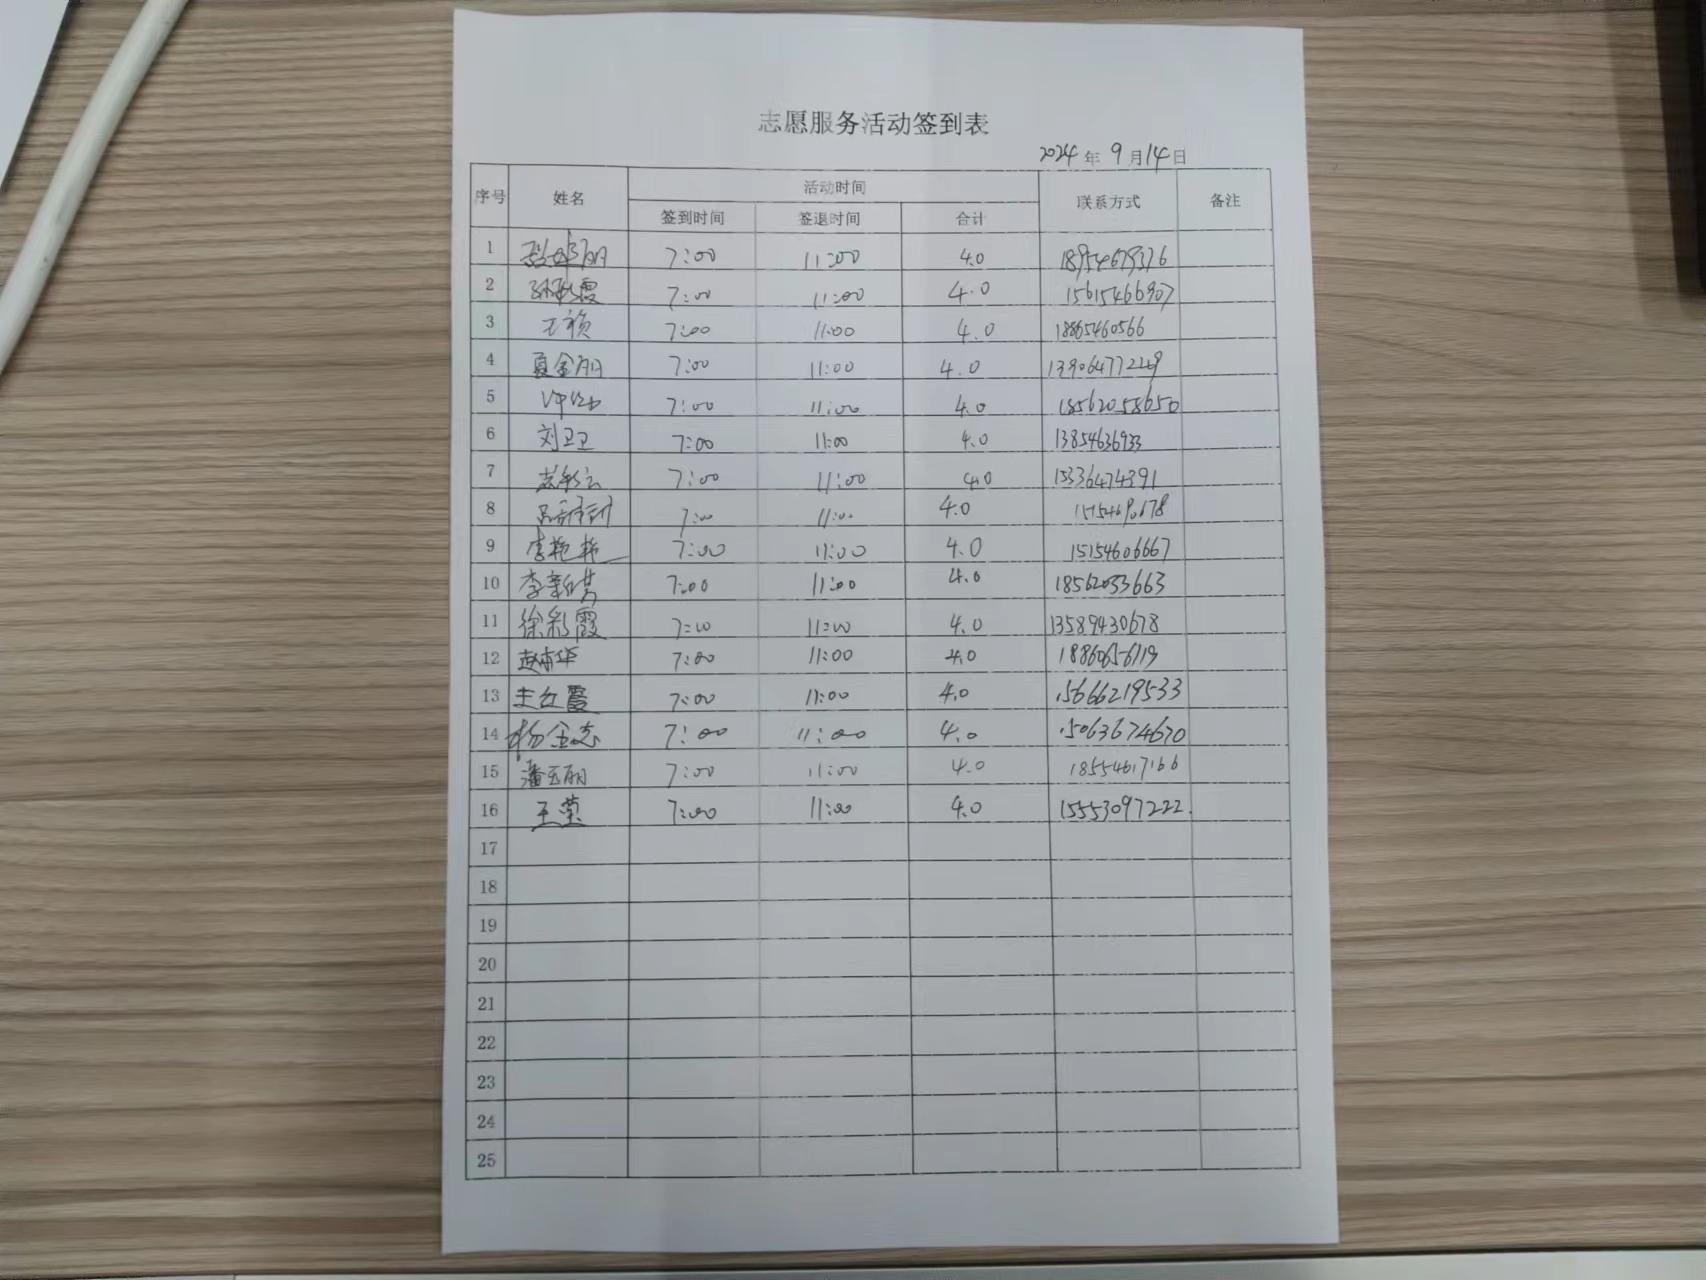 志愿服务活动签到表
2024年9月14日
序号 姓名 活动时间 联系方式 备注
签到时间 签退时间 合计
1 7:00 11:00 4.0 18954679376
2 孙彩霞 7:00 11:00 4.0 15615466907
3 王颖 7:00 11:00 4.0 18865460566
4 夏金丽 7:00 11:00 4.0
5 7:00 11:00 4.0 18562058650
6 刘卫卫 7:00 11:00 4.0 13854636933
7 赵彩云 7:00 11:00 4.0 15336474391
8 7:00 11:00 4.0
9 李艳艳 7:00 11:00 4.0 15154606667
10 李新 7:00 11:00 4.0 18562033663
11 徐彩霞 7:00 11:00 4.0 13589430678
12 7:00 11:00 4.0
13 王红霞 7:00 11:00 4.0 15666219533
14 杨金志 7:00 11:00 4.0 15063674670
15 潘玉丽 7:00 11:00 4.0 18554617166
16 王莹 7:00 11:00 4.0 15553097222.
17
18
19
20
21
22
23
24
25